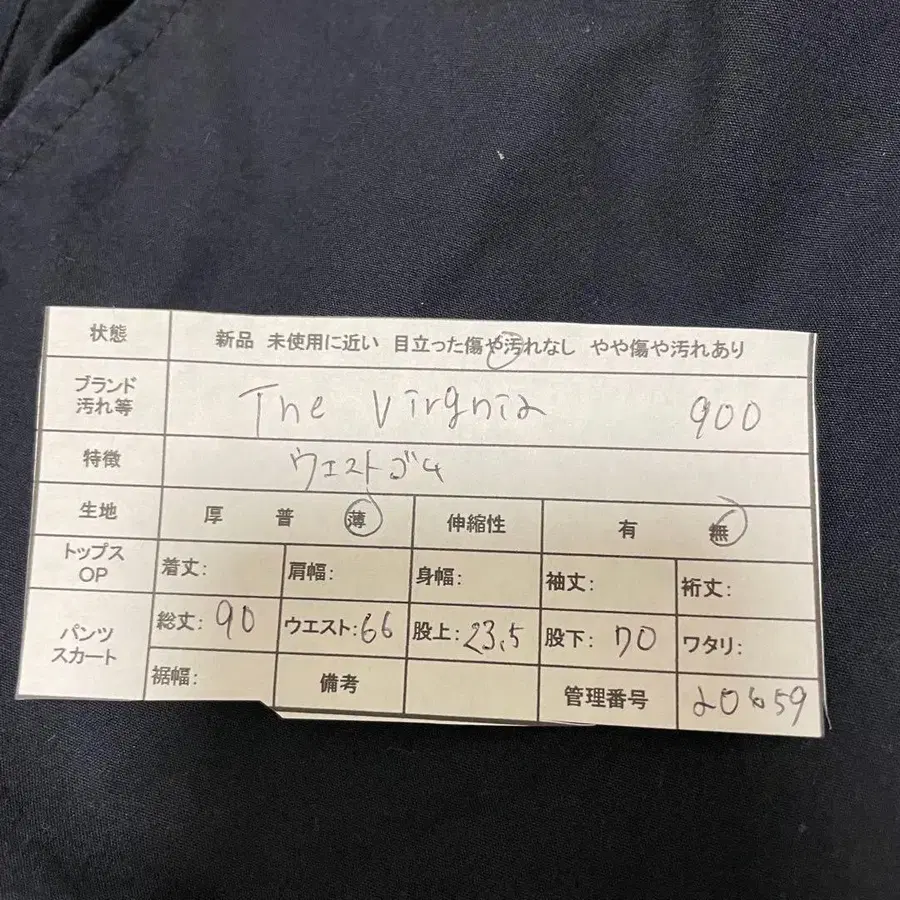 状態 新品 未使用に近い 目立った傷や汚れなし やや傷や汚れあり
ブランド
汚れ等 The Virgnia 900
特徴 ウエストゴム
生地 厚 普 薄 伸縮性 有 無
トップス
OP 着丈: 肩幅: 身幅: 袖丈: 裄丈:
パンツ
スカート 総丈: 90 ウエスト: 66 股上: 23.5 股下: 70 ワタリ:
裾幅: 備考 管理番号